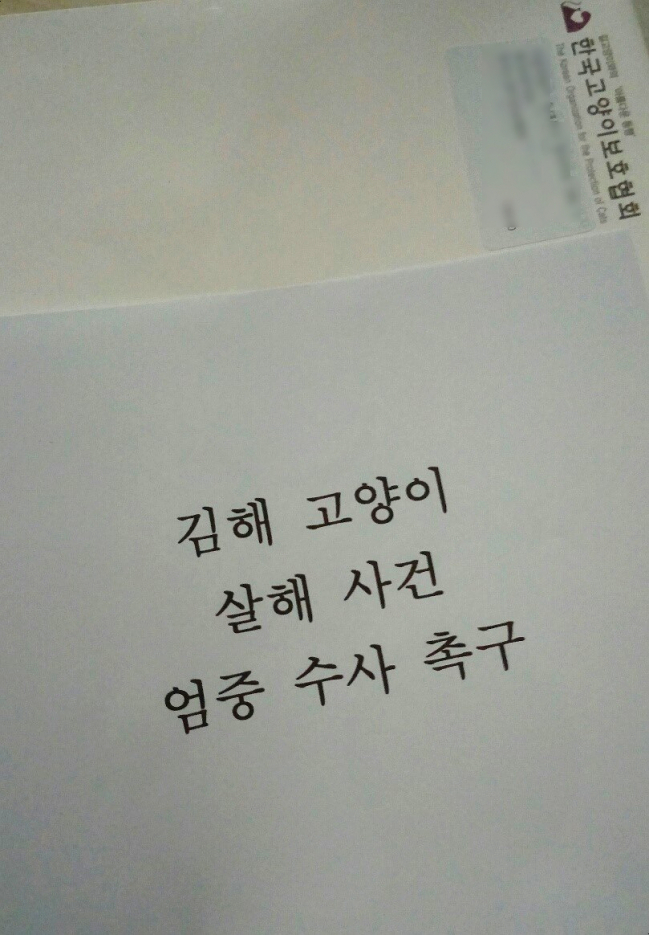 길고양이와의 아름다운 동행
한국고양이보호협회
The Korean Organization for the Protection of Cats
김해 고양이
살해 사건
엄중 수사 촉구